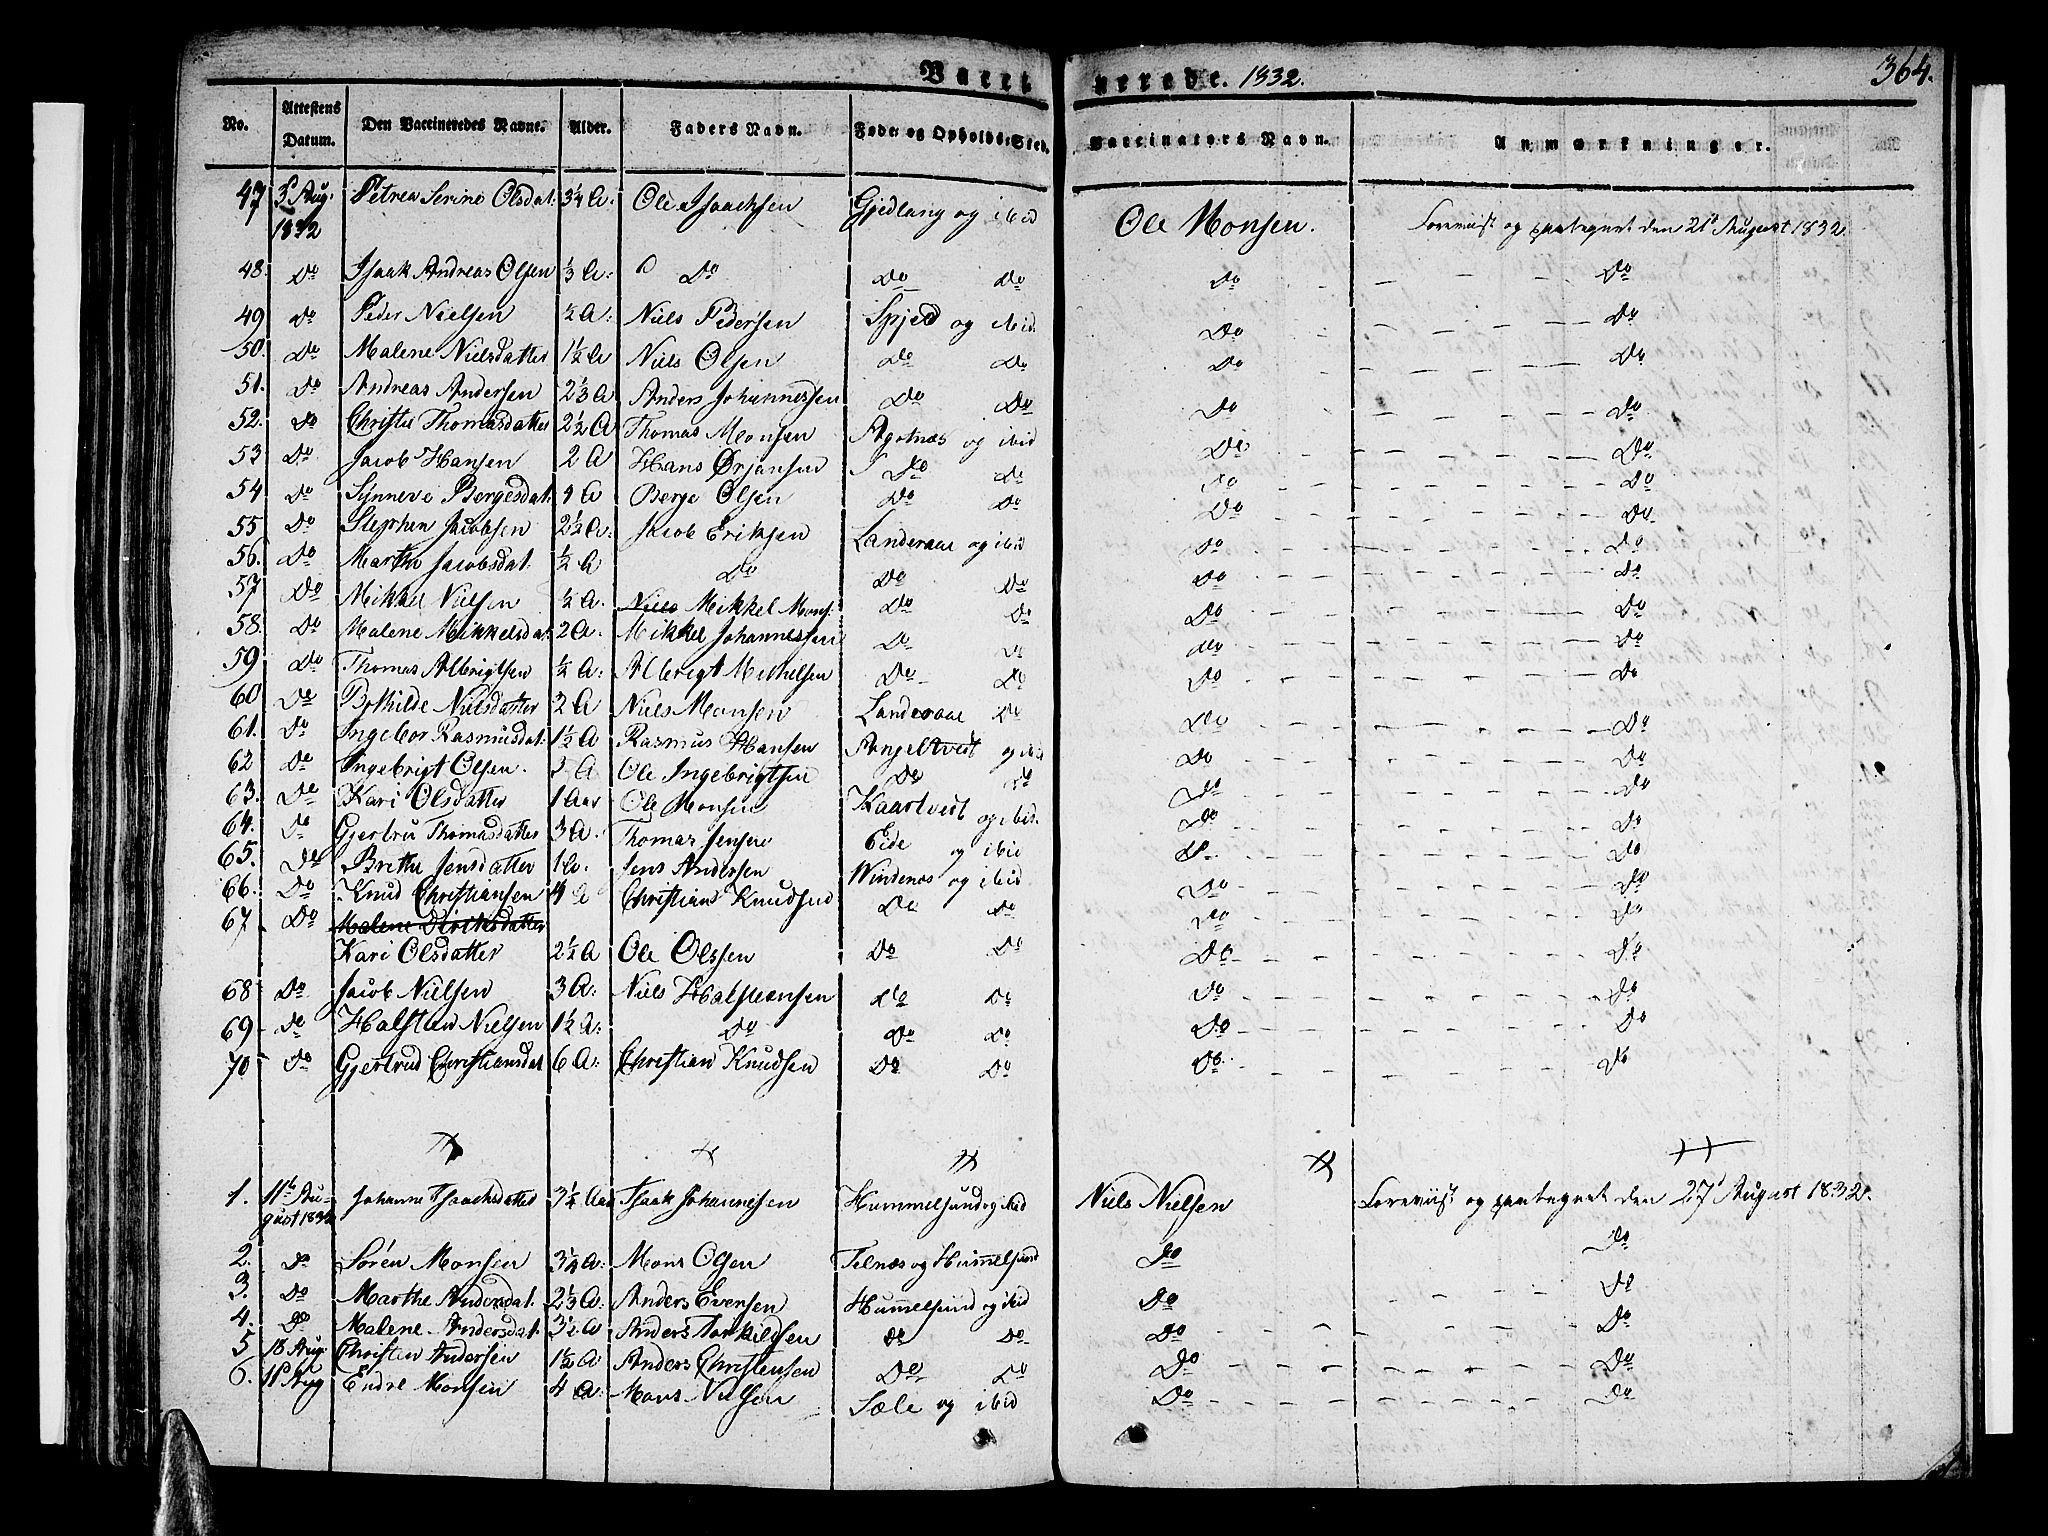 Vacci nerede. 1832. 364.
No. Attestens Datum. Den Vaccineredes Navne. Alder. Faders Navn. Føde- og Opholds-Sted. Vaccinators Navn. Anmærkninger.
47 Aug. 1832 Petrea Serine Olsdat. 3¼ A. Ole Isaachsen Gjedlang og ibid Ole Monsen. Foreviist og paategnet den 21d August 1832
48. Do Isaak Andreas Olsen ⅓ A: Do Do Do Do Do
49 Do Peder Nielsen ½ A: Niels Pedersen Spjeld og ibid. Do Do
50. Do Malene Nielsdatter 1½ A Niels Olsen Do Do Do Do
51. Do Andreas Andersen 2⅓ A Anders Johannessen Do Do Do Do
52. Do Christi Thomasdatter 2½ A Thomas Monsen Agotnæs og ibid Do Do
53 Do Jacob Hansen 2 A Hans Ørjansen Do Do Do Do
54 Do Synneve Bergesdat. A Berge Olsen Do Do Do Do
55 Do Stephen Jacobsen 2½ A: Jacob Eriksen Landeraae og ibid Do Do
56. Do Martha Jacobsdat. ½ A Do Do Do Do Do
57 Do Mikkel Nielsen ½ A. Niels Mikkel Mons: Do Do Do Do
58. Do Malene Mikkelsdat. 2 A. Mikkel Johannessen Do Do Do Do
59 Do Thomas Albrigtsen ½ A: Albrigt Mikkelsen Do Do Do Do
60 Do Bothilde Nielsdatter 2 A Niels Monsen Landeraae Do Do Do
61. Do Ingebor Rasmusdat. 1½ A Rasmus Hansen Angeltveit og ibid Do Do
62 Do Ingebrigt Olsen. 3 A Ole Ingebrigtsen Do Do Do Do
63. Do Kari Olsdatter 1 Aar Ole Monsen Kaartveit og ibid. Do Do
64. Do Gjertru Thomasdatter 3 A. Thomas Jensen Eide og ibid Do Do
65. Do Brithe Jensdatter 1 A. Jens Andersen Windenæs og ibid Do Do
66. Do Knud Christiansen 4 A Christian Knudsen Do Do Do Do
67 Do Malene Diriksdatter Do Do
Kari Olsdatter 2½ A Ole Olssen Do Do Do Do
68 Do Jacob Nielsen 3 A: Niels Halsteensen Do Do Do Do
69 Do Halsten Nielsen 1½ A: Do Do Do Do Do
70 Do Gjertrud Christiansdat 6 A: Christian Knudsen Do Do Do Do
1. 11te August 1832 Johanne Isaachsdatter 3¼ Aar Isaak Johannesen Hummelsund og ibid Niels Nielsen Foreviist og paategnet den 27d August 1832.
2. Do Søren Monsen 3¼ A. Mons Olsen Telnæs og Hummelsund Do Do
3. Do Marthe Andersdat. 2⅓ A: Anders Evensen Hummelsund og ibid Do Do
4. Do Malene Andersdat. 3½ A Anders Torkildsen Do Do Do Do
5 18 Aug. Christen Andersen 1½ A Anders Christensen Do Do Do Do
6. 18 Aug Endre Monsen 4 A: Mons Nielsen Sæle og ibid Do Do